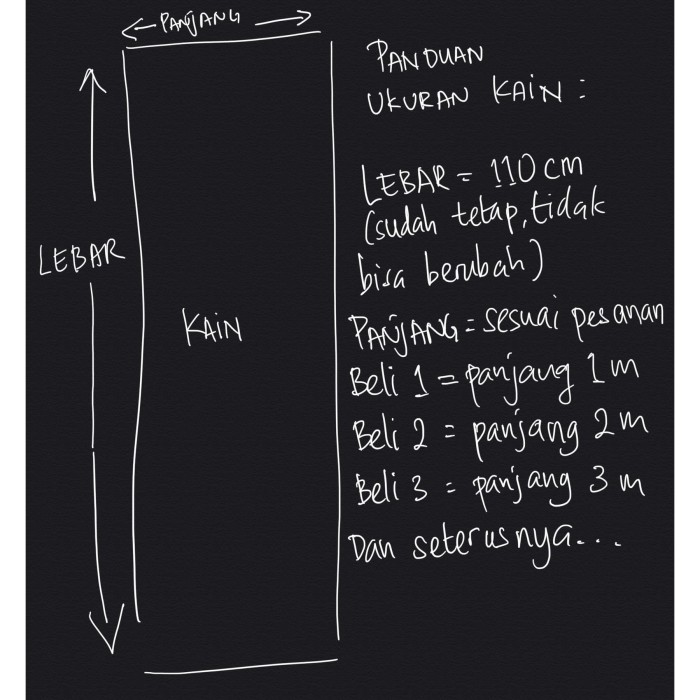 PANJANG
PANDUAN
UKURAN KAIN :
LEBAR = 110 cm
(sudah tetap, tidak
bisa berubah)
LEBAR
KAIN
PANJANG = sesuai pesanan
Beli 1 = panjang 1 m
Beli 2 = panjang 2 m
Beli 3 = panjang 3 m
Dan seterusnya...